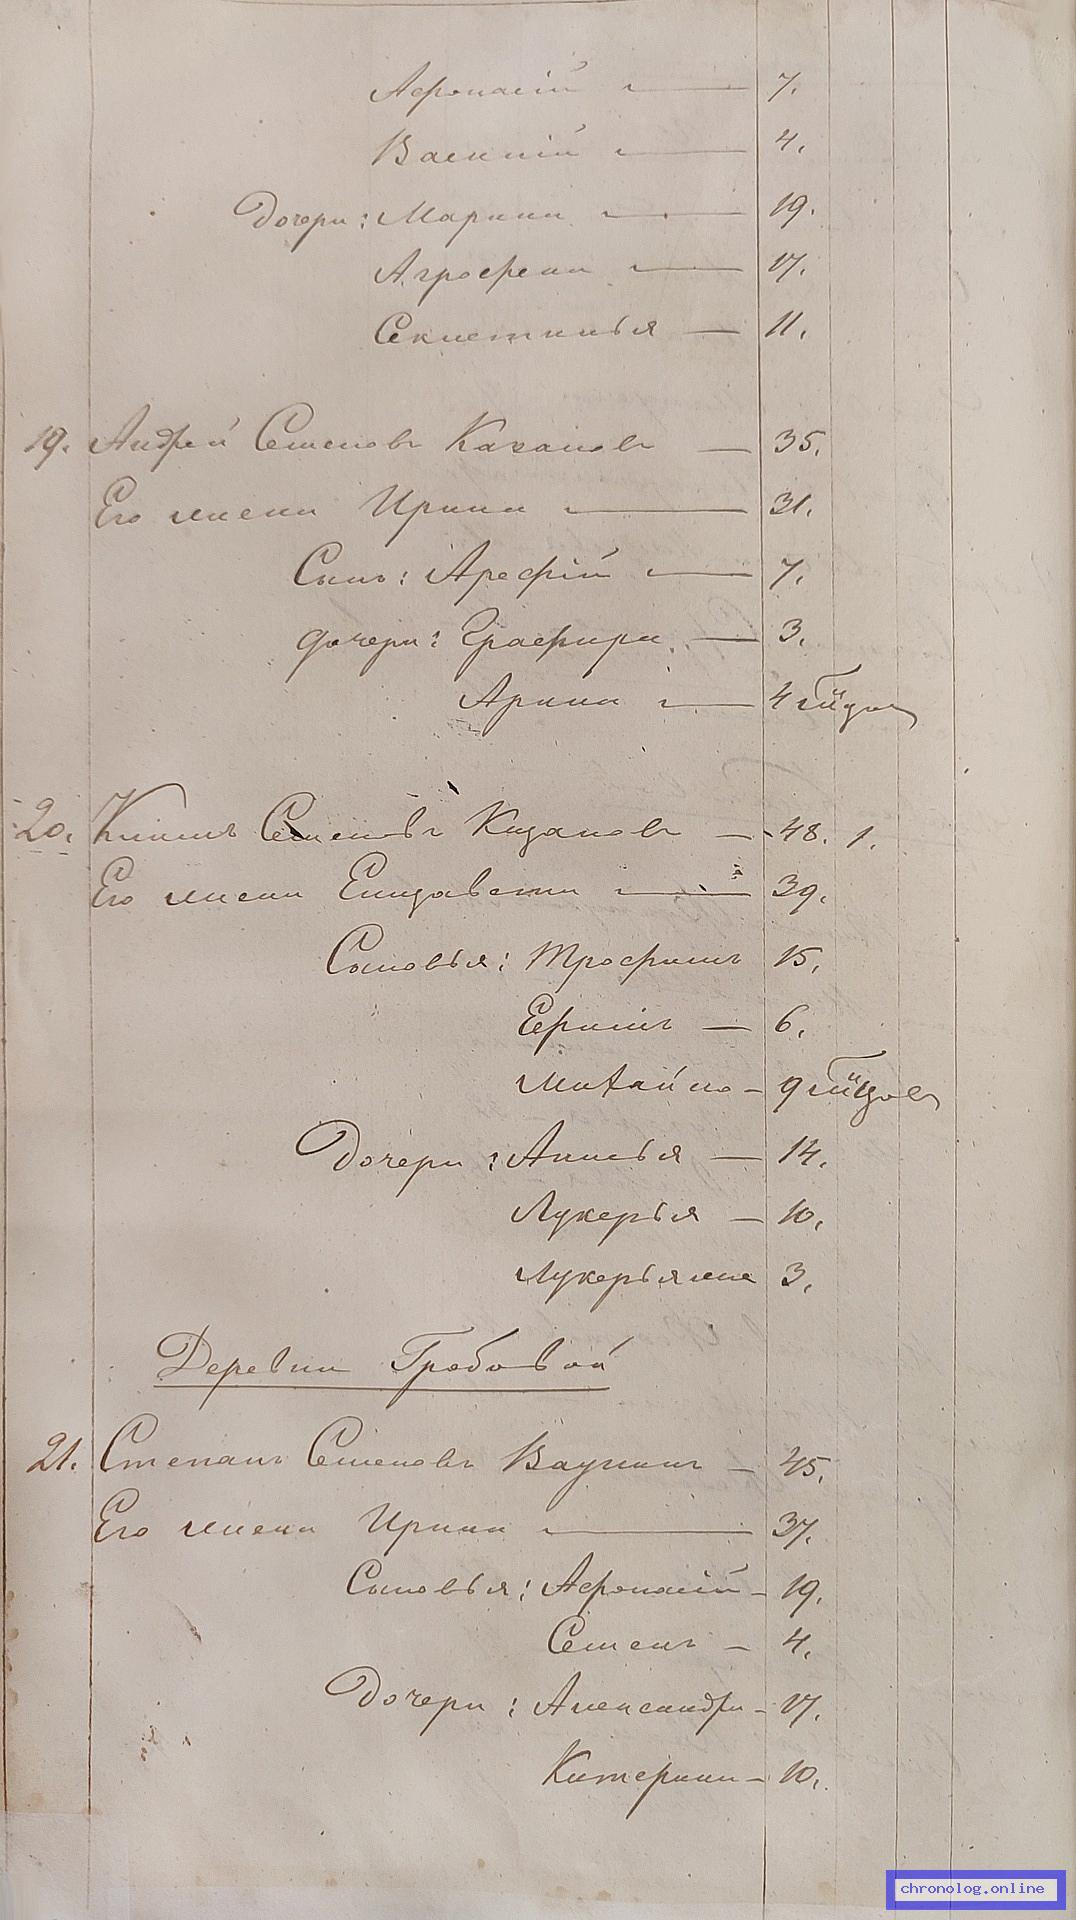 Афонасій — 7.
Василій — 4.
Дочери: Марина — 19.
Аграфена — 17.
Секлетинья — 11.
19. Андрей Семеновъ Казаковъ — 35.
Его жена Ирина — 31.
Сынъ: Арефій — 7.
дочери: Глафира — 3.
Арина — 4
20. Климъ Семеновъ Казаковъ — 48. 1.
Его жена Елизавета — 39.
Сыновья: Трофимъ 15.
Ефимъ — 6.
Михайло — 9
Дочери: Анисья — 14.
Лукерья — 10.
Лукерья же 3.
Деревни Гробовой
21. Степанъ Семеновъ Ваулинъ — 45.
Его жена Ирина — 37.
Сыновья: Афонасій — 19.
Семенъ — 4.
Дочери: Александра — 17.
Катерина — 10.
chronolog.online